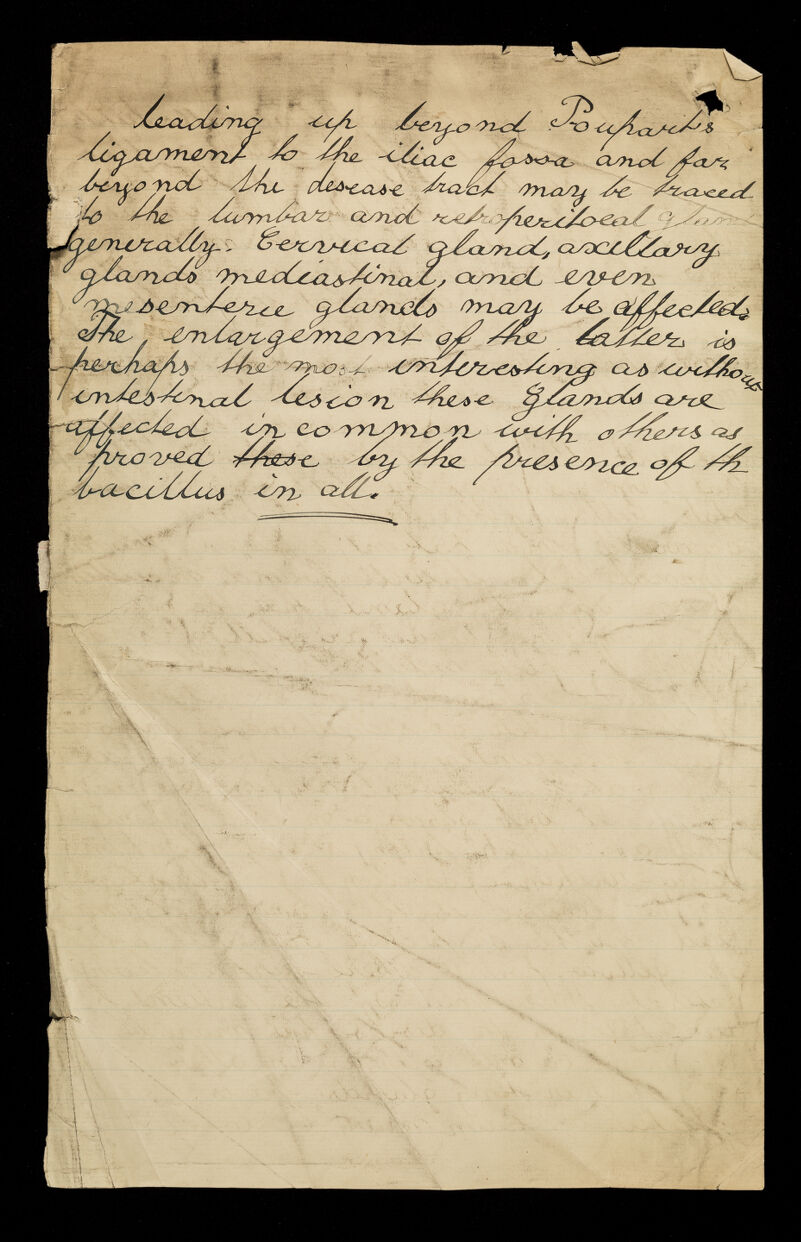 leading up beyond Poupart's
ligament to the iliac fossa and far
beyond the desease tract may be traced
to the lumbar and retroperitoeal gland
generally. Cervical gland, axillary
glands mediastinal, and even
mesenteric glands may be affected.
The enlargement of the latter is
perhaps the most interesting as without
intestinal lesion these glands are
affected in common with others as
proved these by the presence of th
bacillus in all.